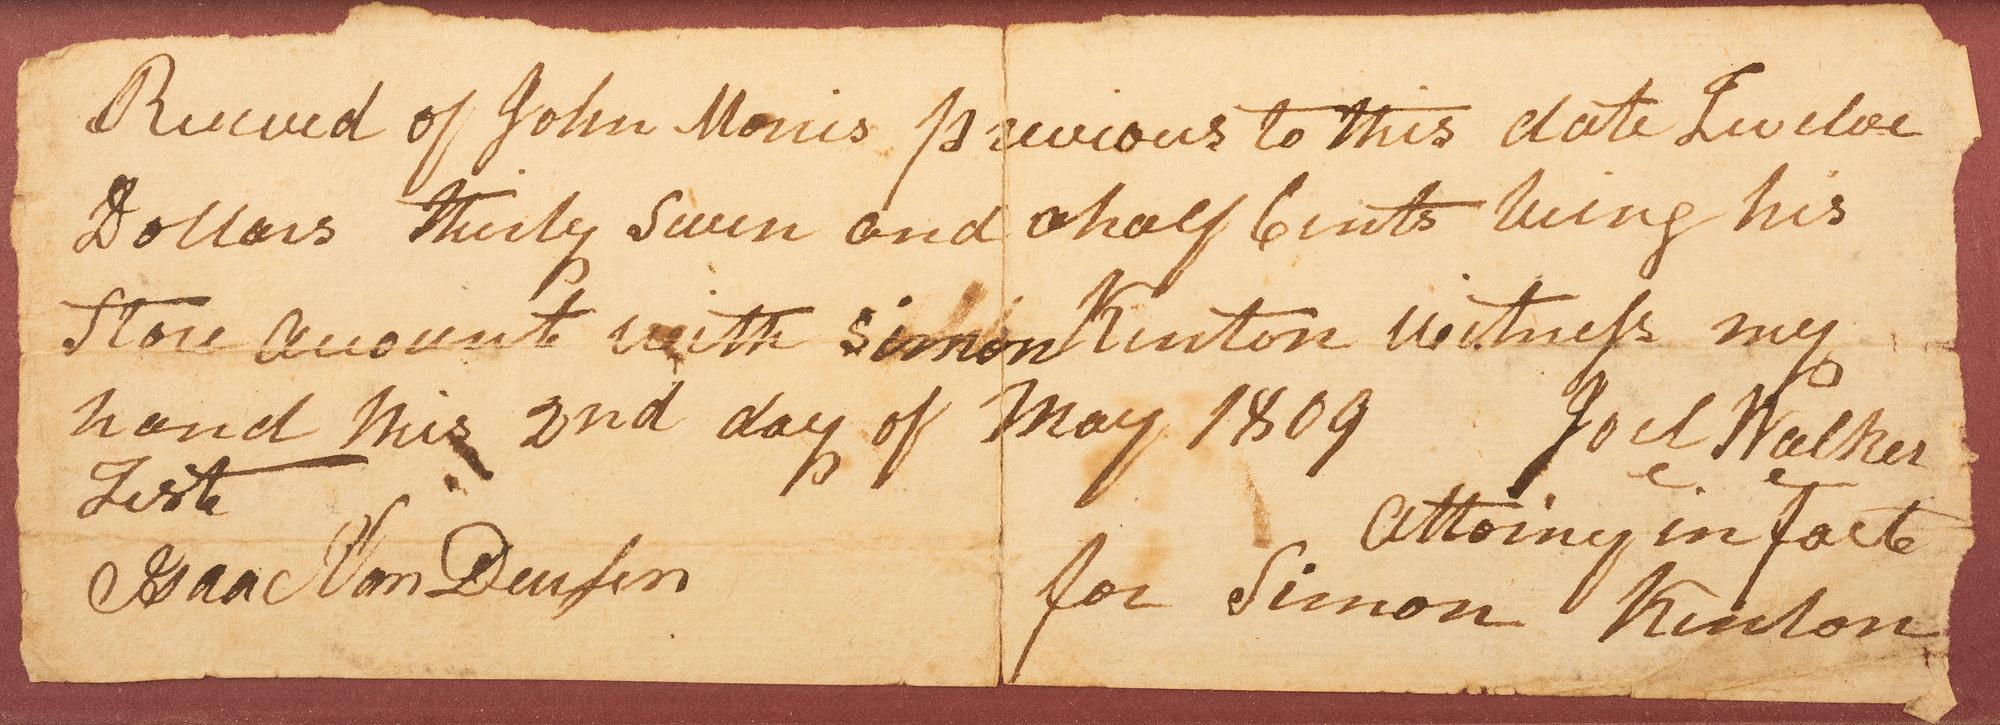 Received of John Morris previous to this date Twelve
Dollars Thirty Seven and a half Cents being his
Store account with Simon Kenton witness my
hand this 2nd day of May 1809 Joel Walker
Test
attorney in fact
Isaac Van Deusen
for Simon Kenton